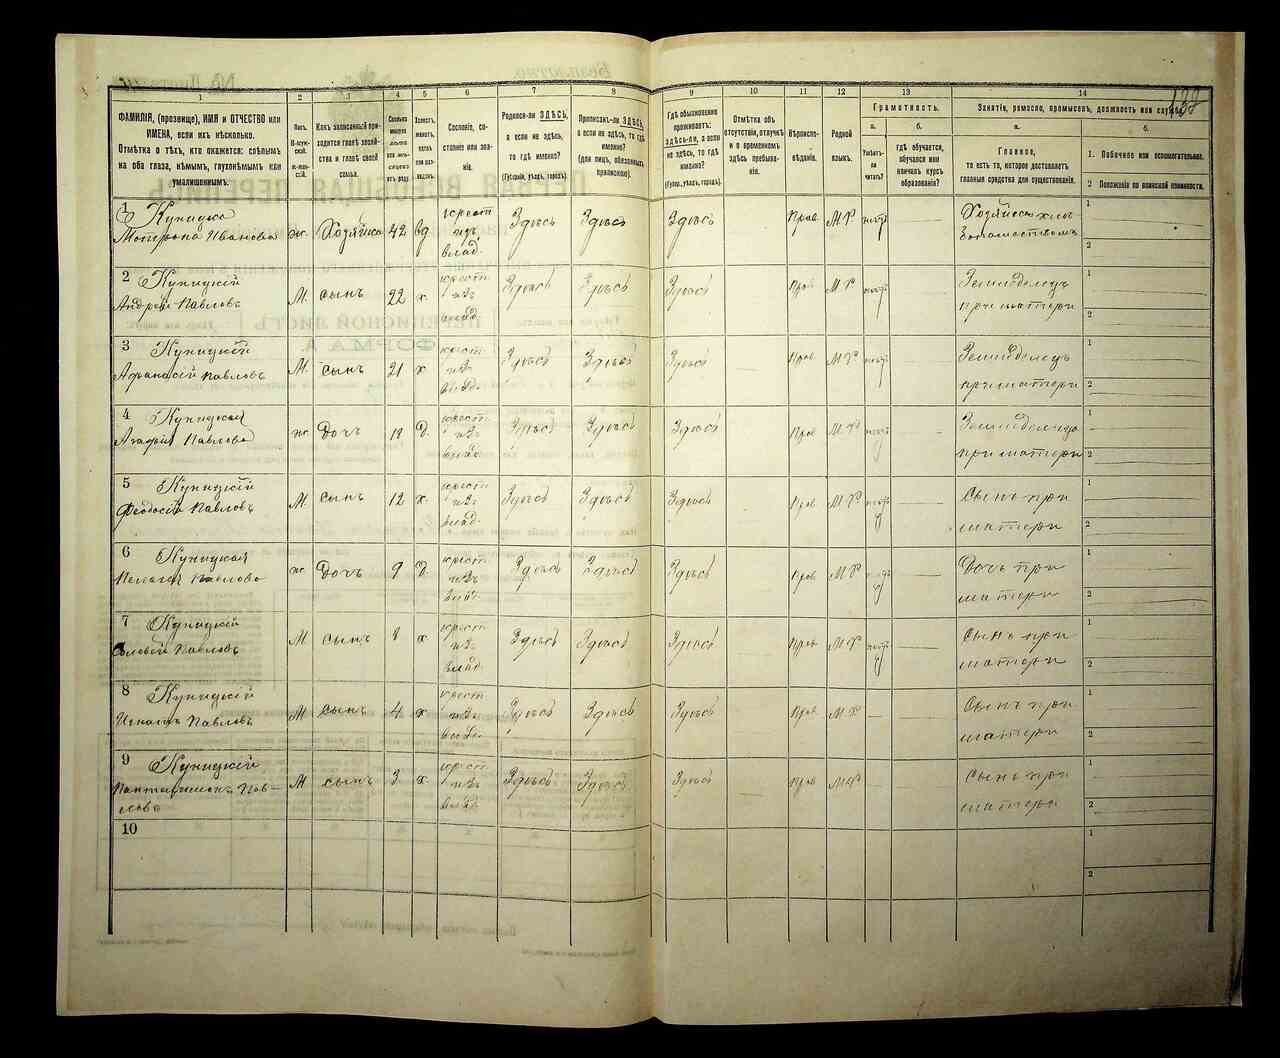 138
1
2
3
4
5
6
7
8
9
10
11
12
13
14
ФАМИЛІЯ, (прозвище), ИМЯ и ОТЧЕСТВО или
ИМЕНА, если ихъ нѣсколько.
Отмѣтка о тѣхъ, кто окажется: слѣпымъ
на оба глаза, нѣмымъ, глухонѣмымъ или
умалишеннымъ.
Полъ.
М-муж-
ской.
Ж-жен-
скій.
Какъ записанный при-
ходится главѣ хозяй-
ства и главѣ своей
семьи.
Сколько
минуло
лѣтъ
Холостъ,
женатъ,
вдовъ
или раз-
веденъ.
Сословіе, со-
стояніе или зва-
ніе.
Родился-ли ЗДѢСЬ,
а если не здѣсь,
то гдѣ именно?
(Губернія, уѣздъ, городъ).
Приписанъ-ли ЗДѢСЬ,
а если не здѣсь, то гдѣ
именно?
(для лицъ, обязанныхъ
припискою).
Гдѣ обыкновенно
проживаетъ:
здѣсь-ли, а если
не здѣсь, то гдѣ
именно?
(Губер., уѣздъ, городъ).
Отмѣтка объ
отсутствіи, отлучкѣ
и о временномъ
здѣсь пребыва-
ніи.
Вѣроиспо-
вѣданіе.
Родной
языкъ.
Грамотность.
а.
б.
Умѣетъ-
ли
читать?
гдѣ обучается,
обучался или
кончилъ курсъ
образованія?
Занятіе, ремесло, промыселъ, должность или служба.
а.
б.
Главное,
то есть то, которое доставляетъ
главныя средства для существованія.
1. Побочное или вспомогательное.
2 Положеніе по воинской повинности.
1 Куницка
Матрона Ивановна ж Хозяйка 42 вд крест изъ влад. Здѣсь Здѣсь Здѣсь Прав М Р нѣтъ — Хозяйка хлѣ-
1
2
2 Куницкій
Андрей Павловъ М. сынъ 22 х. крест изъ влад Здѣсь Здѣсь Здѣсь Прав М Р нѣтъ — Земледѣлецъ
при матери
1
2
3 Куницкій
Афанасій Павловъ М. сынъ 21 х крест изъ влад. Здѣсь Здѣсь Здѣсь Прав М Р нѣтъ — Земледѣлецъ
при матери
1
2
4 Куницкая
Агафія Павлова ж Дочь Д. крест изъ влад. Здѣсь Здѣсь Здѣсь Прав М Р нѣтъ —
при матери
1
2
5 Куницкій
Феодосій Павловъ М. сынъ 12 х крест изъ влад. Здѣсь Здѣсь Здѣсь Прав М Р нѣтъ — Сынъ при
матери
1
2
6 Куницкая
Пелагея Павлова ж Дочь 9 Д. крест изъ влад. Здѣсь Здѣсь Здѣсь Прав М Р нѣтъ — Дочь при
матери
1
2
7 Куницкій
Павловъ М сынъ х крест изъ влад. Здѣсь Здѣсь Здѣсь Прав М Р нѣтъ — Сынъ при
матери
1
2
8 Куницкій
Игнатъ Павловъ М сынъ 4 х крест изъ влад. Здѣсь Здѣсь Здѣсь Прав М Р — — Сынъ при
матери
1
2
9 Куницкій
Пантелимонъ Пав-
ловъ М сынъ 3 х крест изъ влад Здѣсь Здѣсь Здѣсь Прав М Р — — Сынъ при
матери
1
2
10
1
2